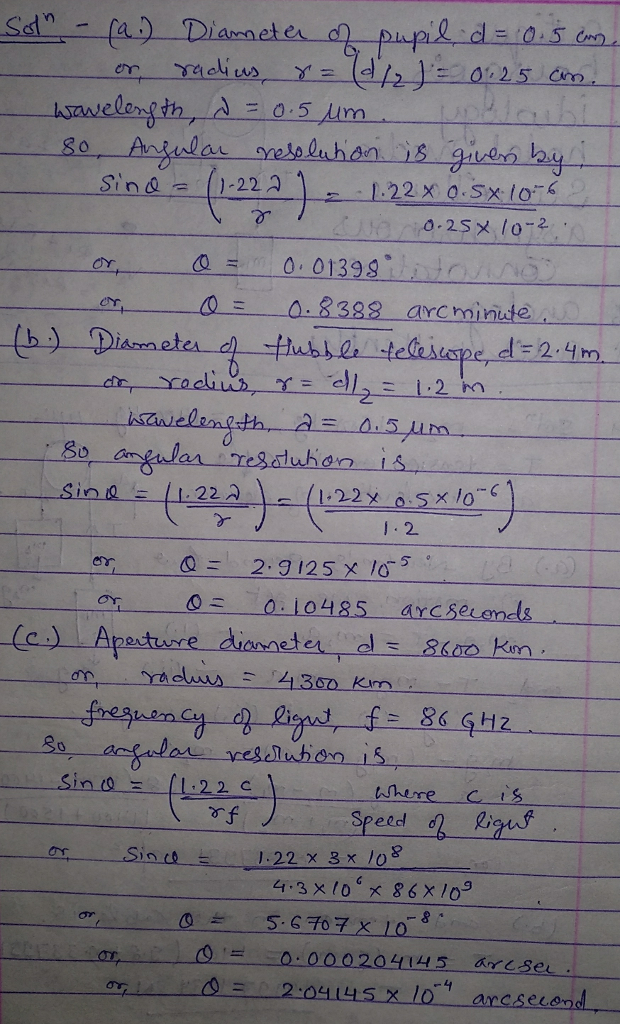 Solⁿ - (a.) Diameter of pupil, d = 0.5 cm.
or, radius, r = (d/2) = 0.25 cm.
wavelength, λ = 0.5 μm.
So, Angular resolution is given by,
Sin θ = (1.22 λ / r) = 1.22 × 0.5 × 10⁻⁶ / 0.25 × 10⁻²
or, θ = 0.01398°
or, θ = 0.8388 arcminute.
(b.) Diameter of Hubble telescope, d = 2.4 m.
or, radius, r = d/2 = 1.2 m.
wavelength, λ = 0.5 μm.
So, angular resolution is,
Sin θ = (1.22 λ / r) = (1.22 × 0.5 × 10⁻⁶ / 1.2)
or, θ = 2.9125 × 10⁻⁵°
or, θ = 0.10485 arcseconds.
(c.) Aperture diameter, d = 8600 Km.
or, radius = 4300 Km.
frequency of light, f = 86 GHZ.
So, angular resolution is,
Sin θ = (1.22 c / rf) where c is
speed of light.
or, Sin θ = 1.22 × 3 × 10⁸ / 4.3 × 10⁶ × 86 × 10⁹
or, θ = 5.6707 × 10⁻⁸°
or, θ = 0.000204145 arcsec.
or, θ = 2.04145 × 10⁻⁴ arcsecond.